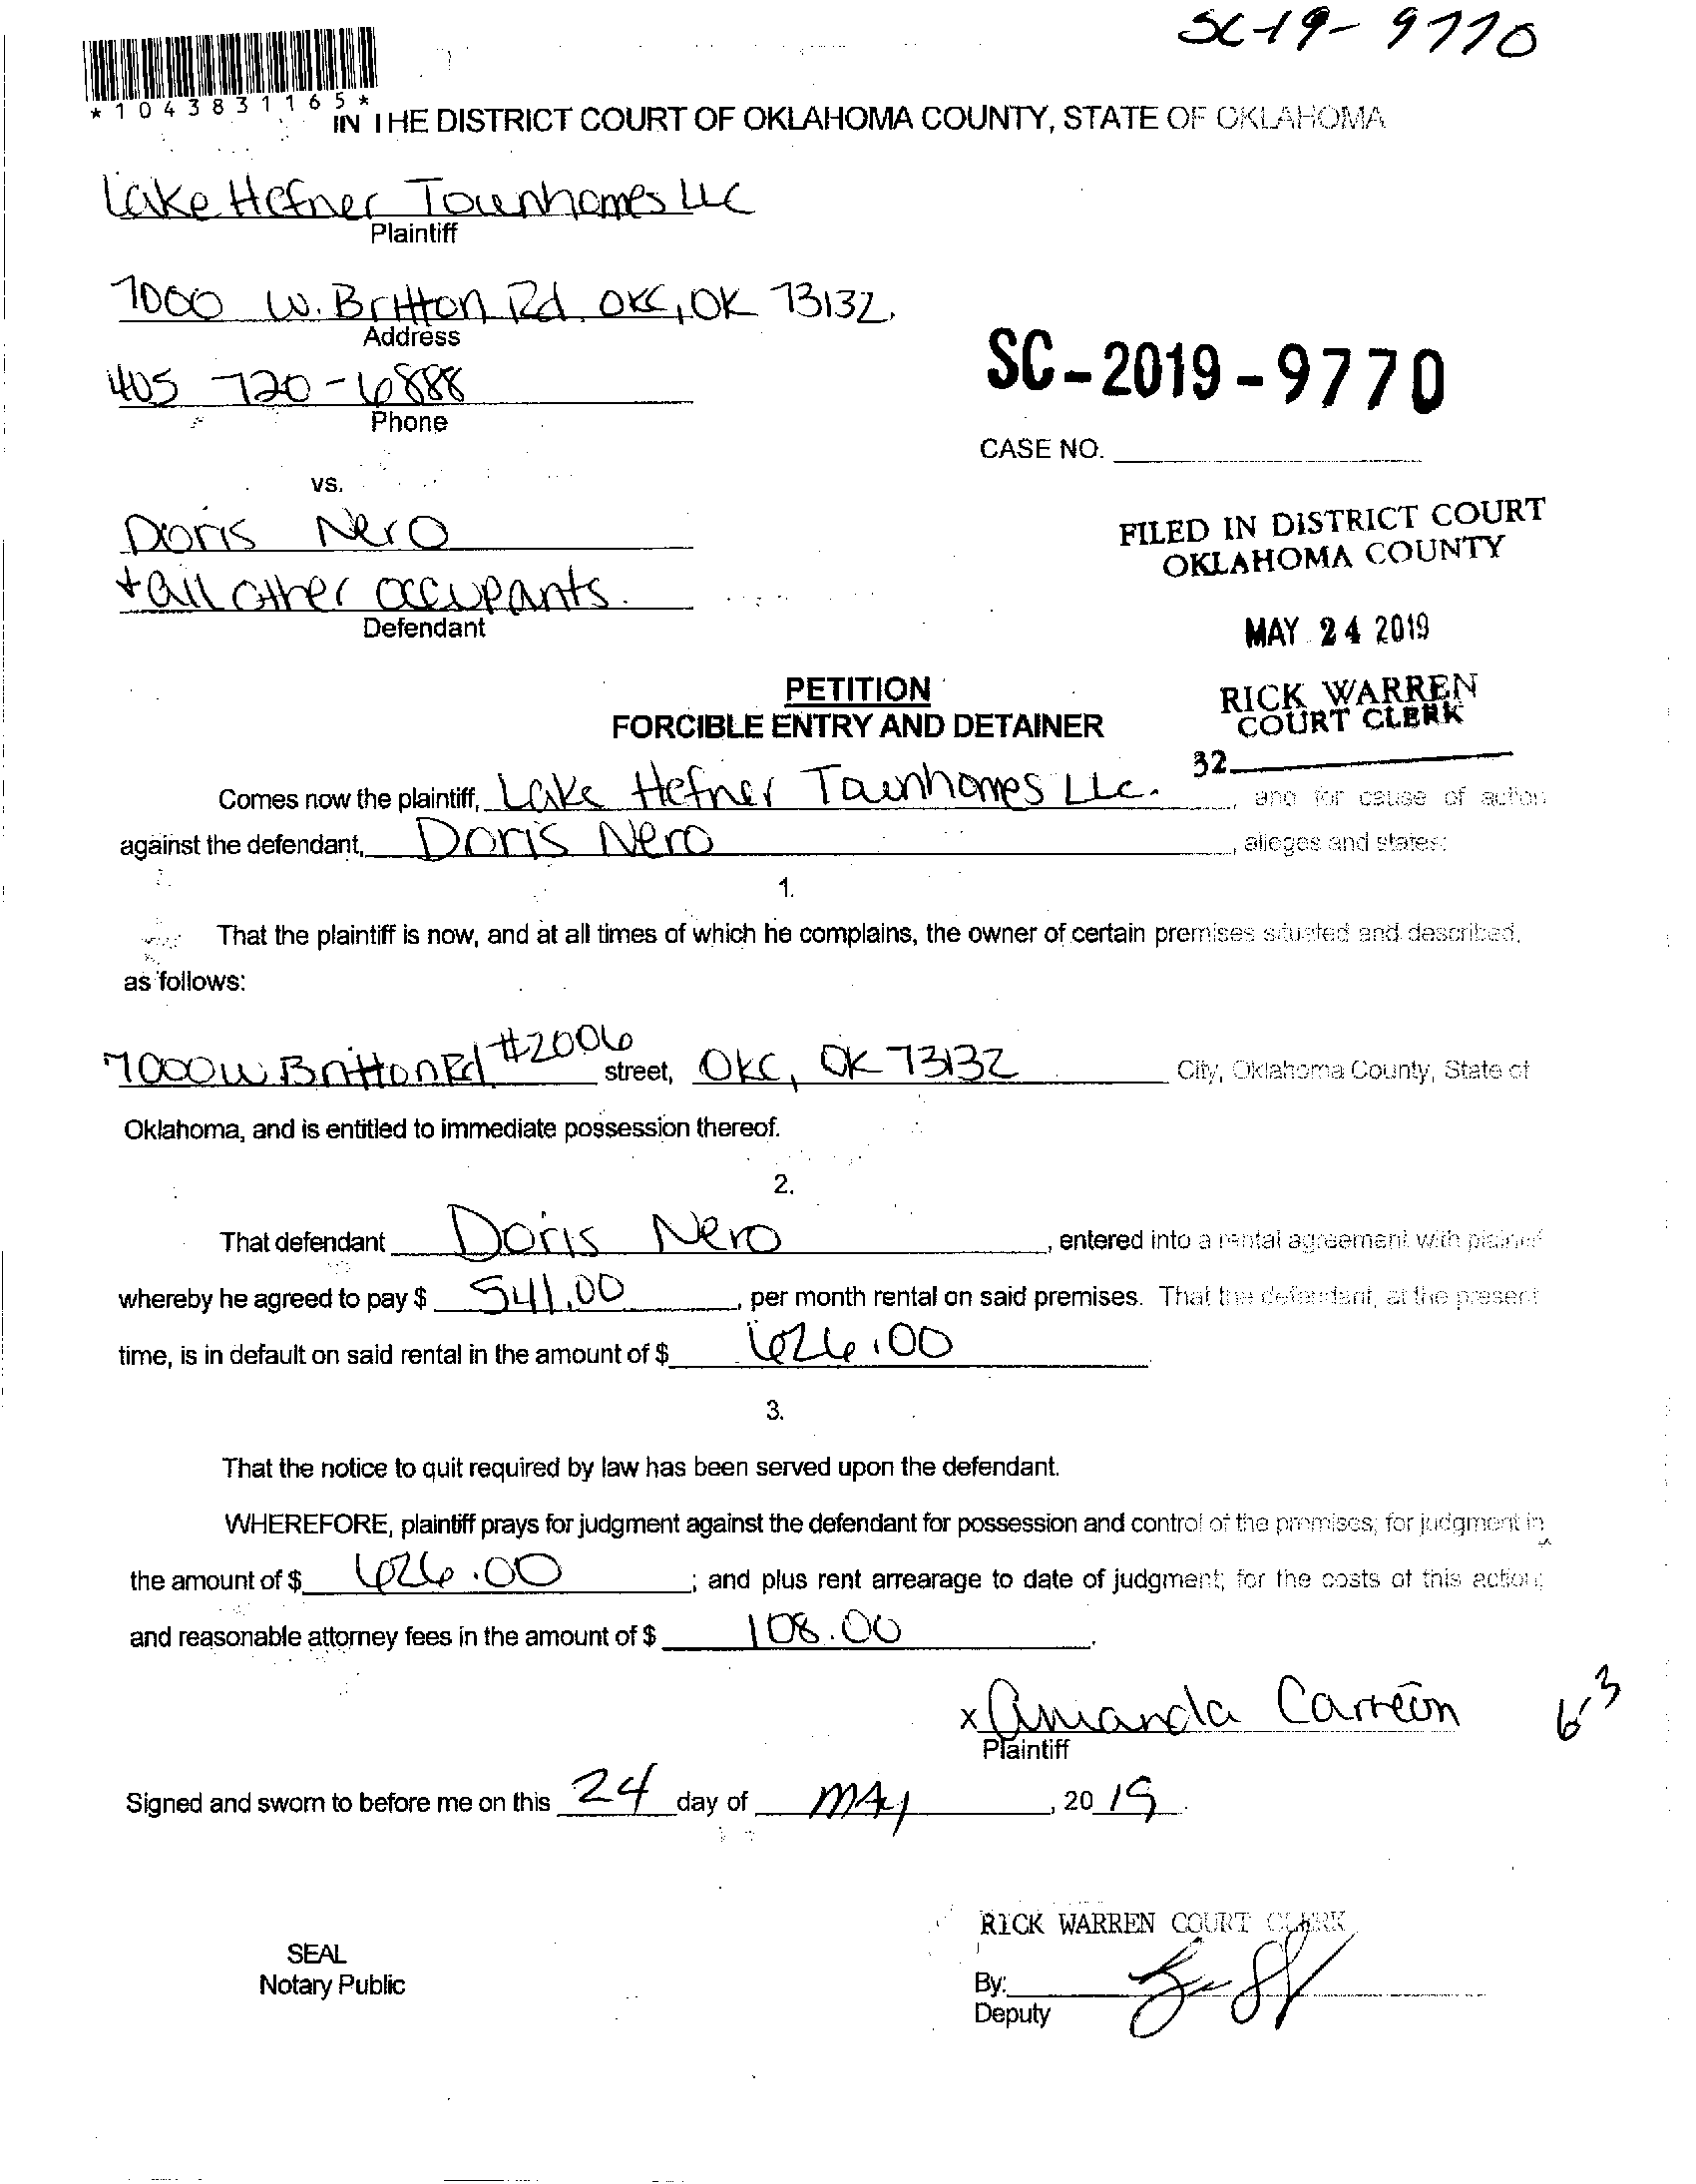 SC-19-9770
*1043831165*
IN THE DISTRICT COURT OF OKLAHOMA COUNTY, STATE OF OKLAHOMA
Lake Hefner Townhomes LLC
Plaintiff
7000 W. Britton Rd. OKC, OK 73132.
Address
405 720-6888
Phone
SC-2019-9770
CASE NO.
vs.
Doris Nero
+ all other occupants.
Defendant
FILED IN DISTRICT COURT
OKLAHOMA COUNTY
MAY 24 2019
RICK WARREN
COURT CLERK
32
PETITION
FORCIBLE ENTRY AND DETAINER
Comes now the plaintiff, Lake Hefner Townhomes LLC. , and for cause of action
against the defendant, Doris Nero , alleges and states:
1.
That the plaintiff is now, and at all times of which he complains, the owner of certain premises situated and described,
as follows:
7000 W Britton Rd #2006 street, OKC, OK 73132 City, Oklahoma County, State of
Oklahoma, and is entitled to immediate possession thereof.
2.
That defendant Doris Nero , entered into a rental agreement with plaintiff
whereby he agreed to pay $ 541.00 , per month rental on said premises. That the defendant, at the present
time, is in default on said rental in the amount of $ 626.00 .
3.
That the notice to quit required by law has been served upon the defendant.
WHEREFORE, plaintiff prays for judgment against the defendant for possession and control of the premises; for judgment in
the amount of $ 626.00 ; and plus rent arrearage to date of judgment; for the costs of this action;
and reasonable attorney fees in the amount of $ 108.00 .
x Amanda Carreon
Plaintiff
6-3
Signed and sworn to before me on this 24 day of MAY , 20 19 .
RICK WARREN COURT CLERK
SEAL
Notary Public
By:
Deputy